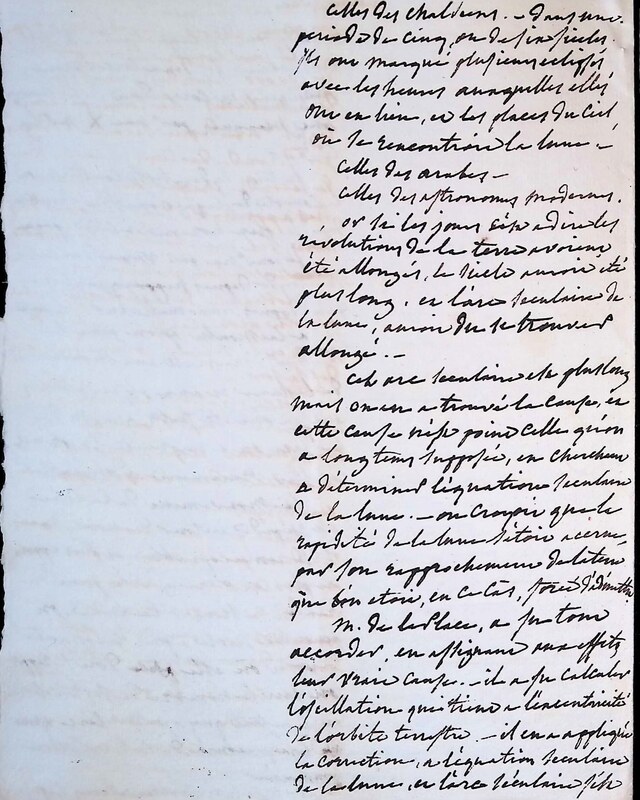 celles des chaldéens. - dans une
periode de cinq, ou de six siecles.
ils ont marqué plusieurs eclipses
avec les heures auxquelles elles
ont eu lieu, et les places du Ciel
où se rencontroit la lune. -
celles des arabes -
celles des astronomes modernes.
or si les jours c'est a dire les
révolutions de la terre avoient
été allongés, le siecle auroit été
plus long, et l'arc séculaire de
la lune, auroit du se trouver
allongé. -
cet arc séculaire est plus long
mais on en a trouvé la cause, et
cette cause n'est point celle qu'on
a longtems supposée, en cherchant
a déterminer l'équation séculaire
de la lune. - on croyoit que la
rapidité de la lune s'étoit accrue,
par son rapprochement de la terre
que l'on etoit, en ce cas, forcé d'admettre
M. de la place, a su tout
accorder, en assignant aux effets
leur vraie cause. - il a su calculer
l'oscillation qui tient a l'excentricité
de l'orbite terrestre. - il en a appliqué
la correction, a l'équation séculaire
de la lune, et l'arc séculaire s'est